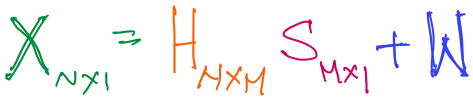 X_{N×1} = H_{N×M} S_{M×1} + W